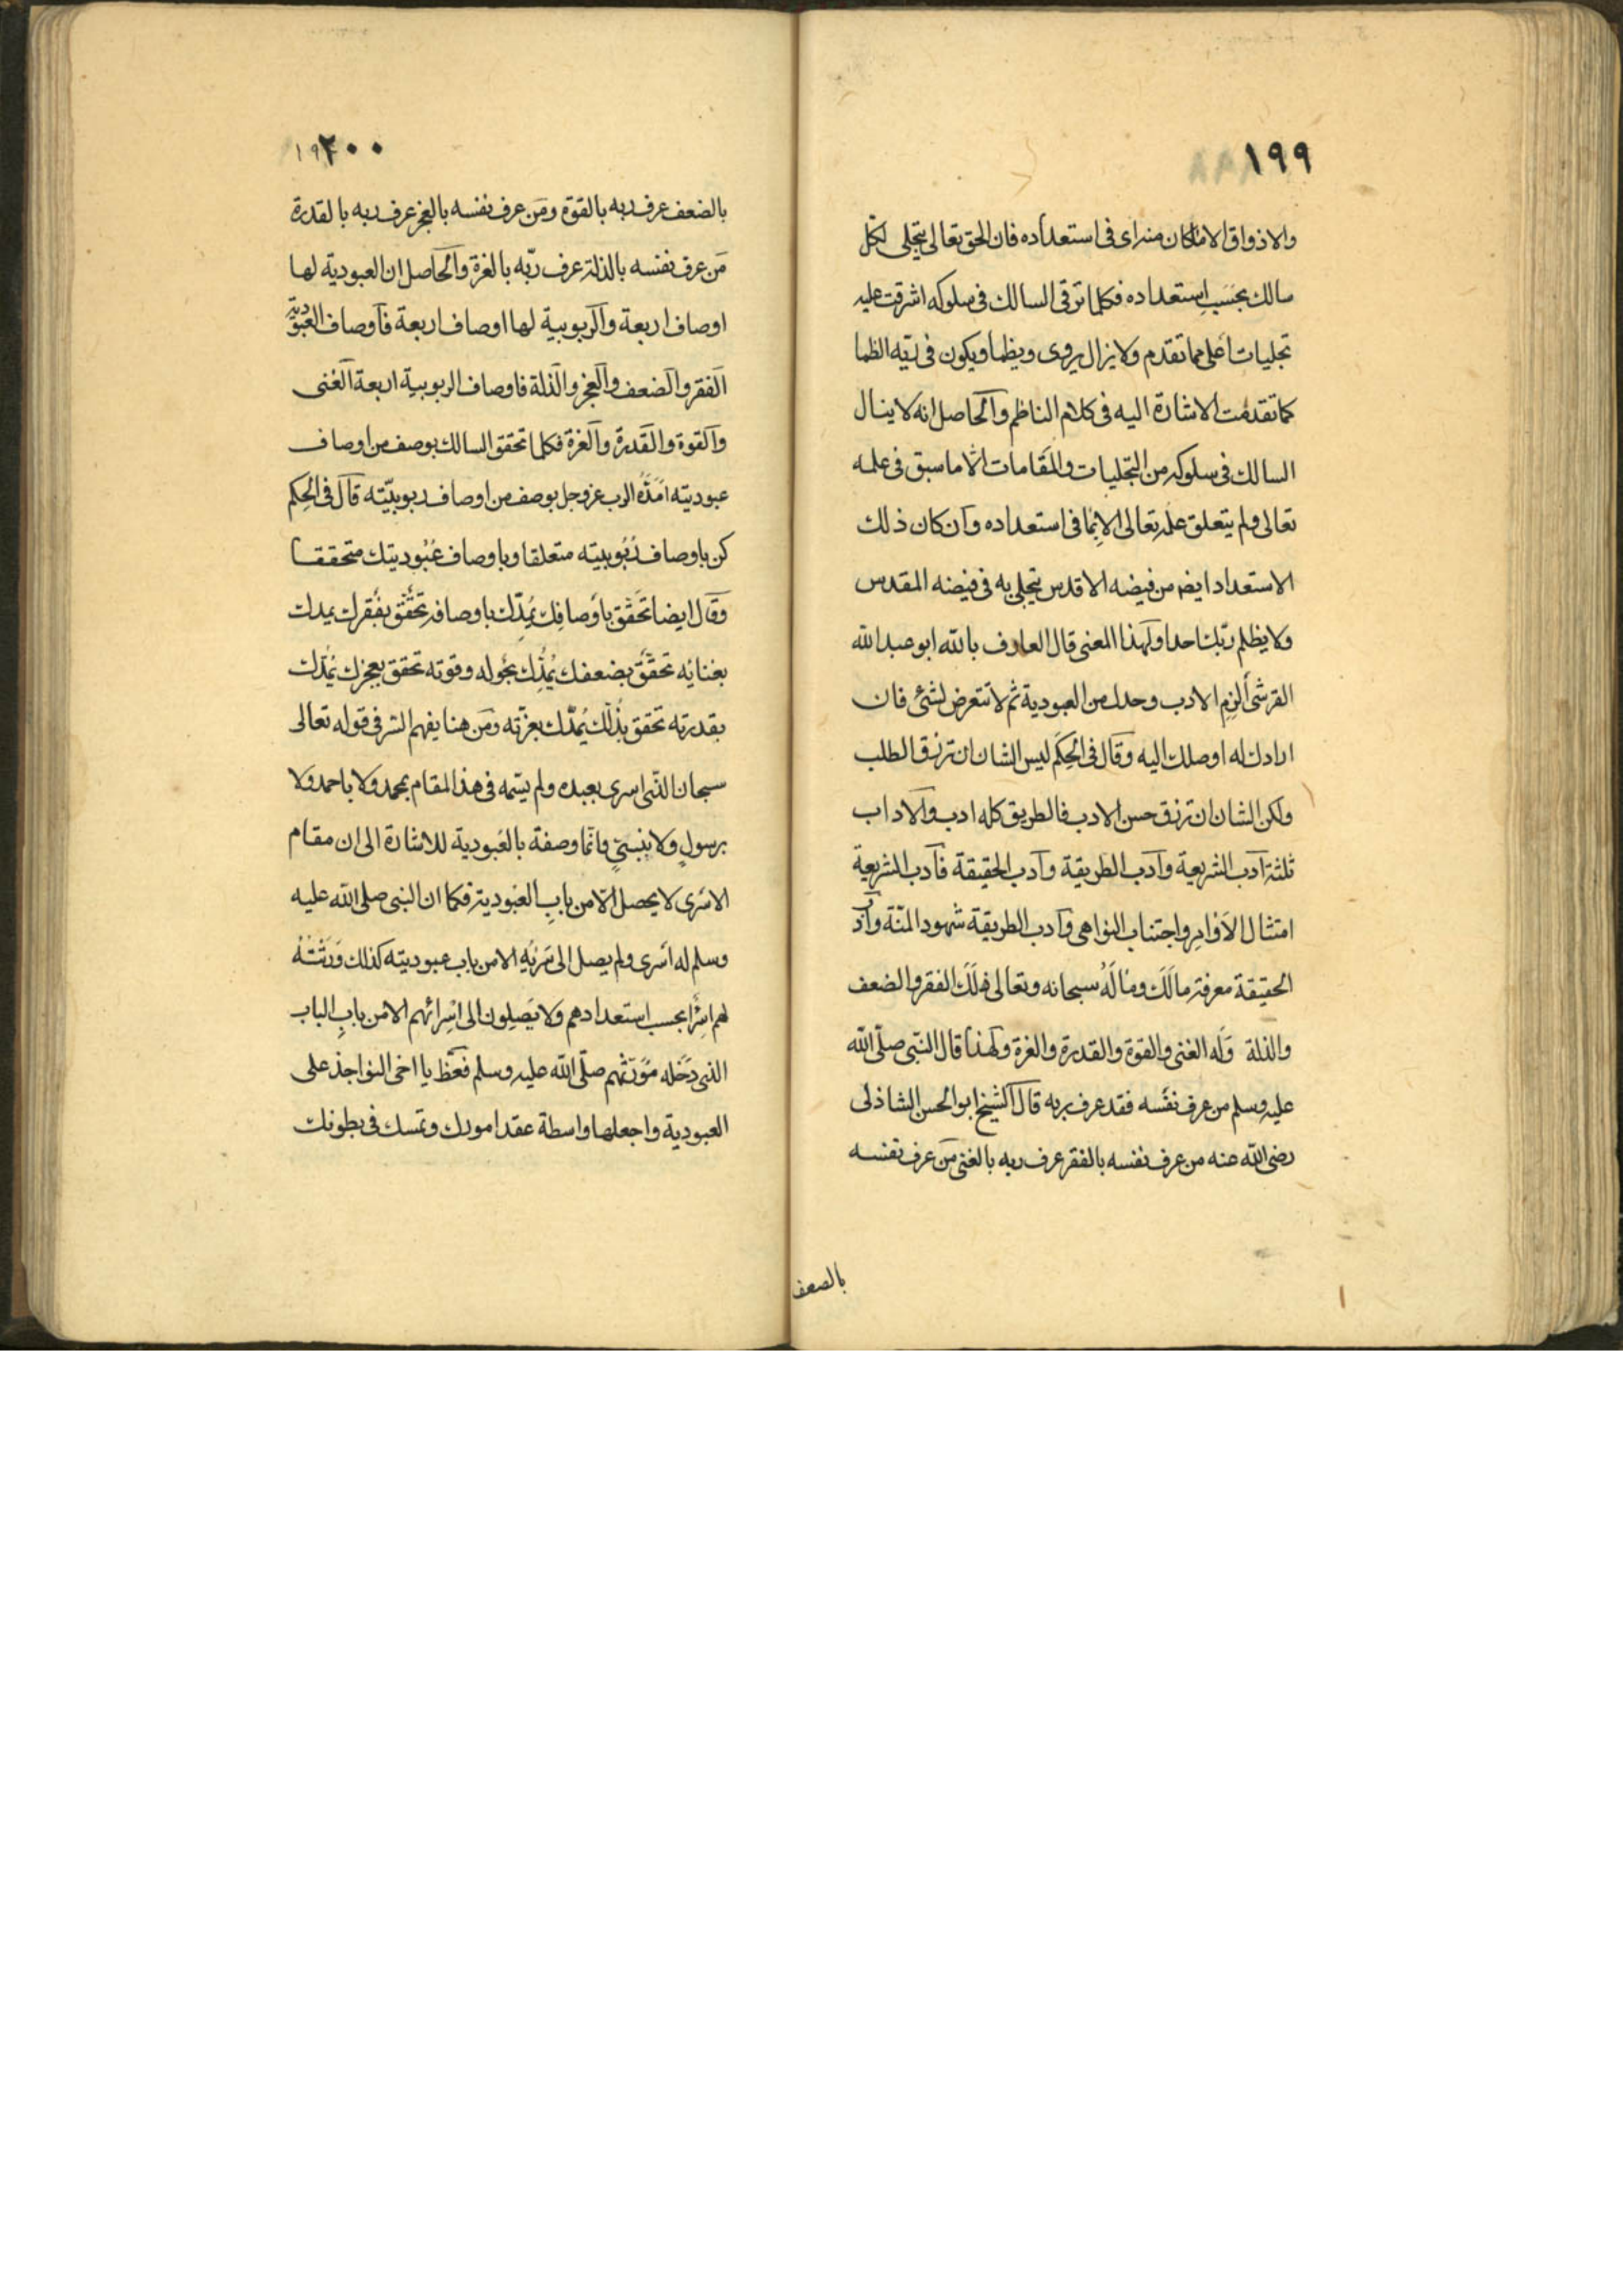 ١٩٩
والاذواق الا ما كان منه اى فى استعداده فان الحق تعالى يتجلى لكل
سالك بحَسَبِ استعداده فكلما ترقى السالك فى سلوكه اشرقت عليه
تجليات أعلى مما تقدم ولا يزال يروى ويظما ويكون فى ريّه الظما
كما تقدمت الاشارة اليه فى كلام الناظم والحاصل انه لا ينال
السالك فى سلوكه من التجليات والمقامات الا ما سبق فى علمه
تعالى ولم يتعلق علمه تعالى الا بما فى استعداده وان كان ذلك
الاستعداد ايضا من فيضه الاقدس يتجلى به فى فيضه المقدس
ولا يظلم ربّك احدا ولهذا المعنى قال العارف بالله ابو عبد الله
القرشى ألزم الادب وحدك من العبودية ثم لا تتعرض لشئ فان
ارادك له اوصلك اليه وقال فى الحِكَم ليس الشان ان ترزق الطلب
ولكن الشان ان ترزق حسن الادب فالطريق كله ادب والاداب
ثلثة آدب الشريعة وآدب الطريقة وآدب الحقيقة فآدب الشريعة
امتثال الأوامِر واجتناب النواهى وآدب الطريقة شهود المنّة وآدب
الحقيقة معرفة مالَكَ ومالَهُ سبحانه وتعالى فلَكَ الفقر والضعف
والذلة وَله الغنى والقوة والقدرة والعزة ولهذا قال النبّى صلّى الله
عليه وسلم من عرف نفسه فقد عرف ربه قال الشيخ ابو الحسن الشاذلى
رضى الله عنه من عرف نفسه بالفقر عرف ربه بالغنى مَن عرف نفسه
بالضعف
٢٠٠
بالضعف عرف ربه بالقوة ومَن عرف نفسه بالعجز عرف ربه بالقدرة
مَن عرف نفسه بالذلة عرف ربّه بالعزة والحاصل ان العبودية لها
اوصاف اربعة والربوبية لها اوصاف اربعة فآوصاف العبودية
الفقر والضعف والعجز والذلة فاوصاف الربوبية اربعة الغنى
والقوة والقدرة والعزة فكلما تحقق السالك بوصف من اوصاف
عبوديته امَدّه الرب عز وجل بوصف من اوصاف ربوبيّته قال فى الحِكم
كن باوصاف رُبُوبيته متعلقا وباوصاف عُبُوديتك متحققا
وقال ايضا تَحَقّق بأوصافِك يُمِدّك باوصافه تحَقّق بفقرك يمدك
بغنائه تحقّق بضعفك يُمِدّك بحوله وقوته تحقق بعجزك يُمدّك
بقدرته تحقق بذُلّك يُمدّك بعزّته ومَن هنا يفهم السر فى قوله تعالى
سبحان الذى اسرى بعبده ولم يسّمه فى هذا المقام بمحمد ولا باحمد ولا
برسولٍ ولا بنبىٍّ وانّما وصفه بالعُبودية للاشارة الى ان مقام
الاسْرى لا يحصل الّا من بابِ العُبودية فكما ان النبى صلى الله عليه
وسلم له أسرى ولم يصل الى سَرْيِهِ الا من باب عبوديته كذلك وَرَثَتُهُ
لهم اسْرًا بحسب استعدادهم ولا يَصِلون الى اسْرائهم الا من بابِ الباب
الذى دَخَله مُوَرّثهم صلّى الله عليه وسلم فعَضّ يا اخى النواجذ على
العبودية واجعلها واسطة عقد امورك وتمسك فى بطونك